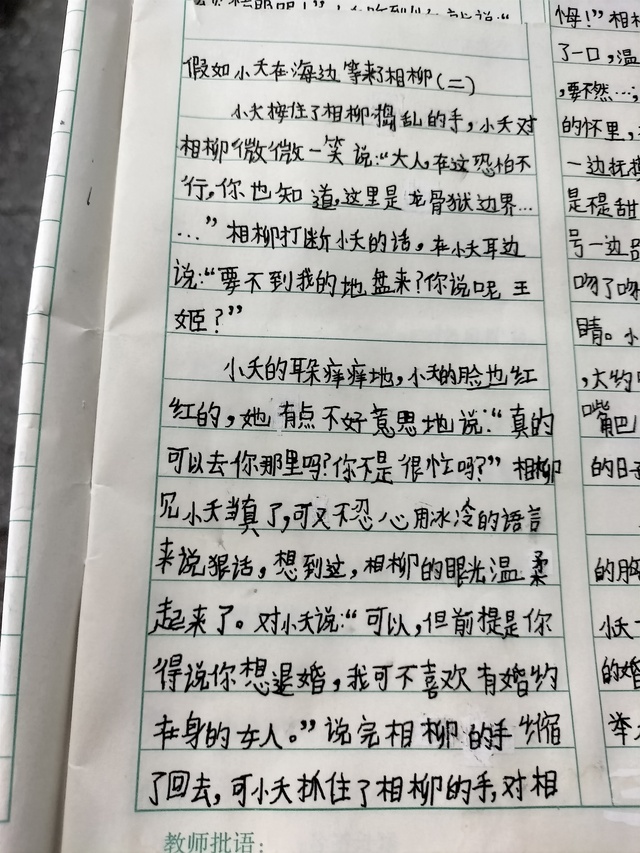 假如小夭在海边等来了相柳(二)
小夭按住了相柳捣乱的手，小夭对
相柳微微一笑说：“大人，在这恐怕不
行，你也知道，这里是龙骨狱边界…
…”相柳打断小夭的话，在小夭耳边
说：“要不到我的地盘来？你说呢王
姬？”
小夭的耳朵痒痒地，小夭的脸也红
红的，她有点不好意思地说：“真的
可以去你那里吗？你不是很忙吗？”相柳
见小夭当真了，可又不忍心用冰冷的语言
来说狠话，想到这，相柳的眼光温柔
起来了。对小夭说：“可以，但前提是你
得说你想退婚，我可不喜欢有婚约
在身的女人。”说完相柳的手缩
了回去，可小夭抓住了相柳的手，对相
教师批语：
悔！”相
了一口，温
，要不然…；
的怀里，
一边抚摸
是不是甜
号一边
吻了吻
睛。小
，大约
嘴巴
的日子
的胸
小夭
的婚
举